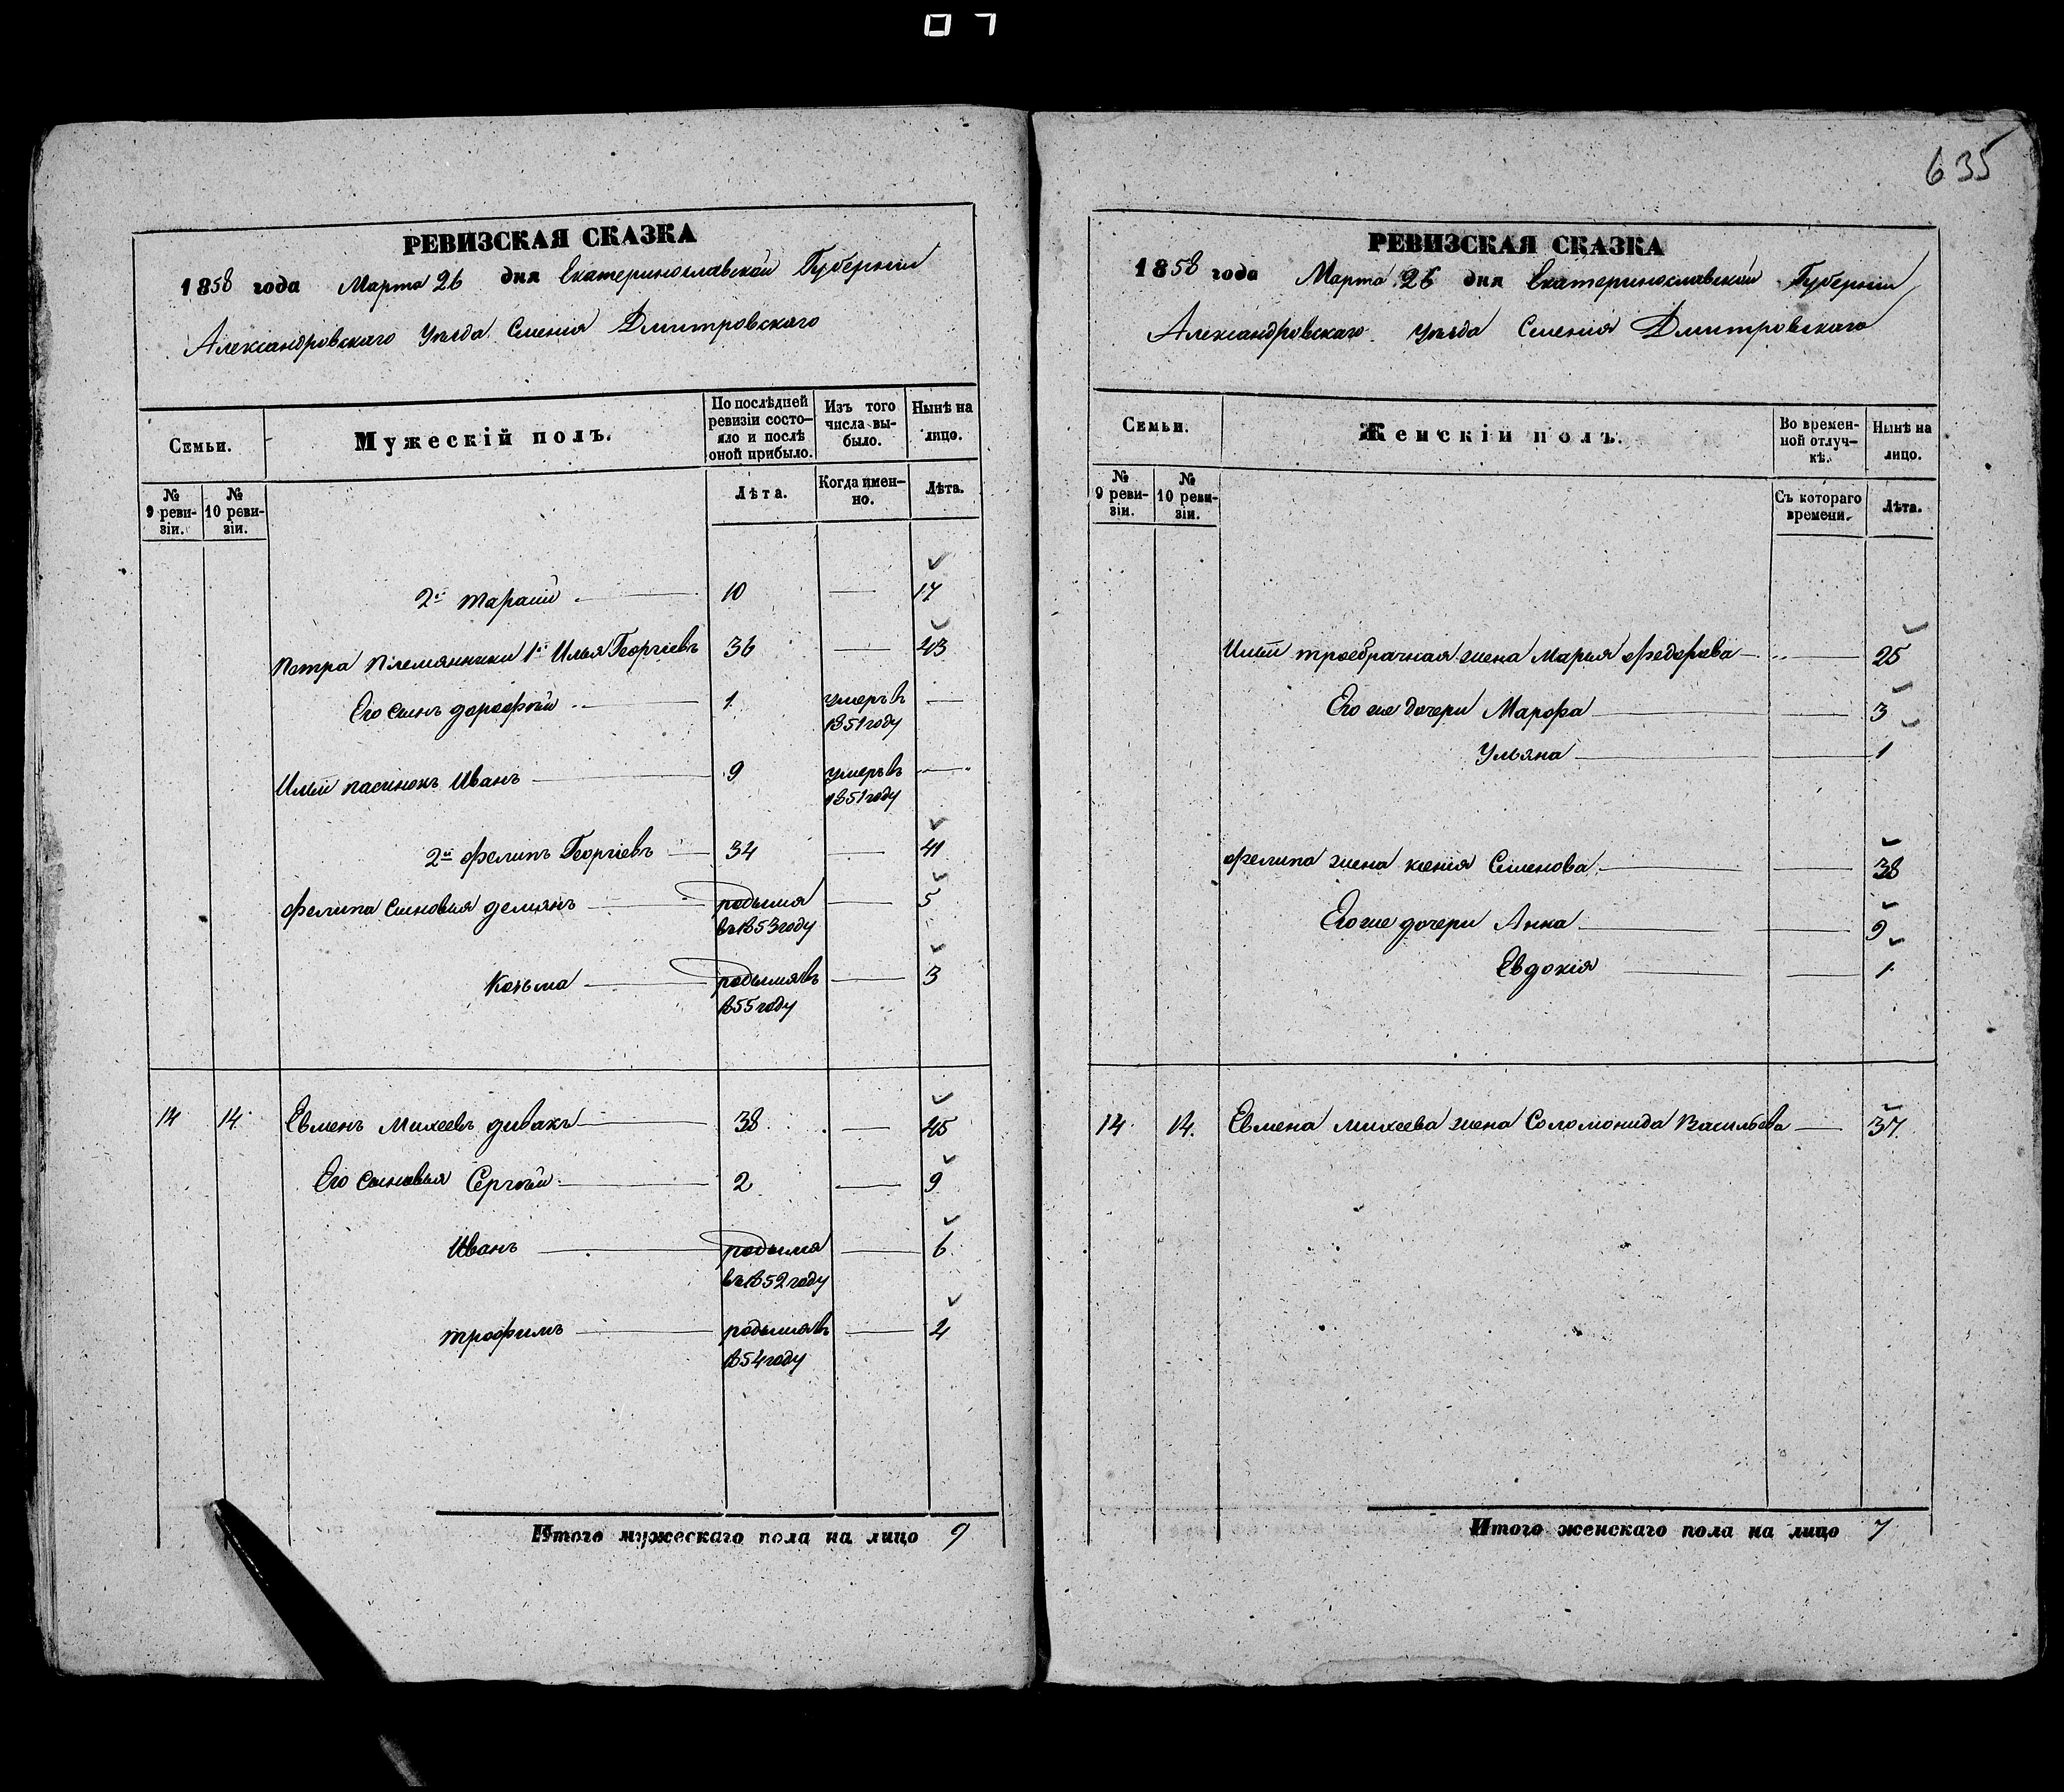 635
РЕВИЗСКАЯ СКАЗКА
1858 года Марта 26 дня Екатеринославской Губернiи
Александровскаго Уѣзда Дмитровскаго
Семьи.
Мужескiй полъ.
По послѣдней ревизiи состо-
яло и послѣ
оной прибыло.
Изъ того
числа вы-
было.
Нынѣ на
лицо.
№
9 реви-
зiи.
№
10 реви-
зiи.
Лѣта.
Когда имен-
но.
Лѣта.
2й Тарасiй 10 — 17
Петра Племянники 1й Илья Георгiевъ 36 — 43
Его сынъ дорофѣй 1 умеръ въ —
1851 году
Ильи пасинокъ Иванъ 9 умеръ въ —
1851 году
2й Филипъ Георгiевъ 34 — 41
Филипа сыновья демянъ родился — 5
въ 1853 году
Козьма родился въ — 3
1855 году
14 14 Евменъ Михеевъ дивакъ 38 — 45
Его сыновья Сергѣй 2 — 9
Иванъ родился — 6
въ 1852 году
трофимъ родился въ — 4
1854 году
Итого мужескаго пола на лицо 9
РЕВИЗСКАЯ СКАЗКА
1858 года Марта 26 дня Екатеринославской Губернiи
Александровскаго Уѣзда Дмитровскаго
Семьи.
Женскiй полъ.
Во времен-
ной отлуч-
кѣ.
Нынѣ на
лицо.
№
9 реви-
зiи.
№
10 реви-
зiи.
Съ котораго
времени.
Лѣта.
Ильи троебрачная жена Марья Федорова — 25
Его же дочери Марфа — 3
Ульяна — 1
Филипа жена ксенiя Семенова — 38
Его же дочери Анна — 9
Евдокiя — 1
14 14. Евмена михеева жена Соломонида Васильева — 37
Итого женскаго пола на лицо 7